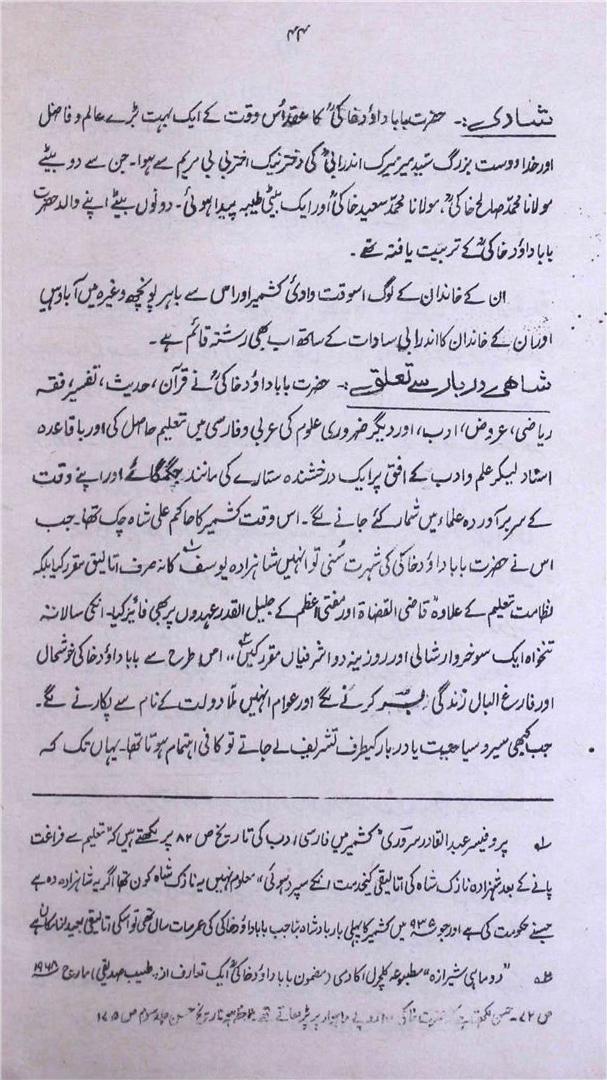 ۴۴
شادی:۔ حضرت بابا داؤد خاکیؒ کا عقد اُس وقت کے ایک بہت بڑے عالم و فاضل
اور خدا دوست بزرگ سید میر میرک اندرابیؒ کی دختر نیک اختر بی بی مریم سے ہوا۔ جن سے دو بیٹے
مولانا محمد صالح خاکیؒ، مولانا محمد سعید خاکیؒ اور ایک بیٹی طیبہ پیدا ہوئی۔ دونوں بیٹے اپنے والد حضرت
بابا داؤد خاکیؒ کے تربیت یافتہ تھے۔
ان کے خاندان کے لوگ اسوقت وادیٔ کشمیر اور اس سے باہر پونچھ وغیرہ میں آباد ہیں
اور ان کے خاندان کا اندرابی سادات کے ساتھ اب بھی رشتہ قائم ہے۔
شاھی دربار سے تعلق:۔ حضرت بابا داؤد خاکیؒ نے قرآن، حدیث، تفسیر، فقہ
ریاضی، عروض، ادب، اور دیگر ضروری علوم کی عربی و فارسی میں تعلیم حاصل کی اور باقاعدہ
اسناد لیکر علم و ادب کے افق پر ایک درخشندہ ستارے کی مانند جگمگائے اور اپنے وقت
کے سربرآوردہ علماء میں شمار کئے جانے لگے۔ اس وقت کشمیر کا حاکم علی شاہ چک تھا۔ جب
اس نے حضرت بابا داؤد خاکی کی شہرت سُنی تو انہیں شاہزادہ یوسف کا نہ صرف اتالیق مقرر کیا بلکہ
نظامت تعلیم کے علاوہ قاضی القضاۃ اور مفتی اعظم کے جلیل القدر عہدوں پر بھی فائز کیا۔ انکی سالانہ
تنخواہ ایک سو خروار شالی اور روزینہ دو اشرفیاں مقرر کیں،، اس طرح سے بابا داؤد خاکی خوشحال
اور فارغ البال زندگی بسر کرنے لگے اور عوام انہیں ملّا دولت کے نام سے پکارنے لگے۔
جب کبھی سیر و سیاحت یا دربار کیطرف تشریف لے جاتے تو کافی اہتمام ہوتا تھا۔ یہاں تک کہ
۱؎ پروفیسر عبدالقادر سروری "کشمیر میں فارسی ادب کی تاریخ ص ۸۲ پر لکھتے ہیں کہ "تعلیم سے فراغت
پانے کے بعد شہزادہ نازک شاہ کی اتالیقی کیخدمت انکے سپرد ہوئی" معلوم نہیں یہ نازک شاہ کون تھا اگر یہ شاہزادہ وہ ہے
جسنے حکومت کی ہے اور جو ۹۳۵ھ میں کشمیر کا پہلی بار بادشاہ بنا جب بابا داؤد خاکی کی عمر سات سال تھی تو اسکی اتالیقی بعید از امکان ہے
۲؎ "دو ماہی شیرازہ" مطبوعہ کلچرل اکادمی (مضمون بابا داؤد خاکیؒ ایک تعارف از۔ طبیب صدیقی) مارچ ۱۹۶۸
ص ۷۲۔ حسن لکھتا ہے کہ حضرت خاکی روپے ماہوار پر پڑھاتے تھے تاریخ حسن جلد سوم ص ۱۷۵